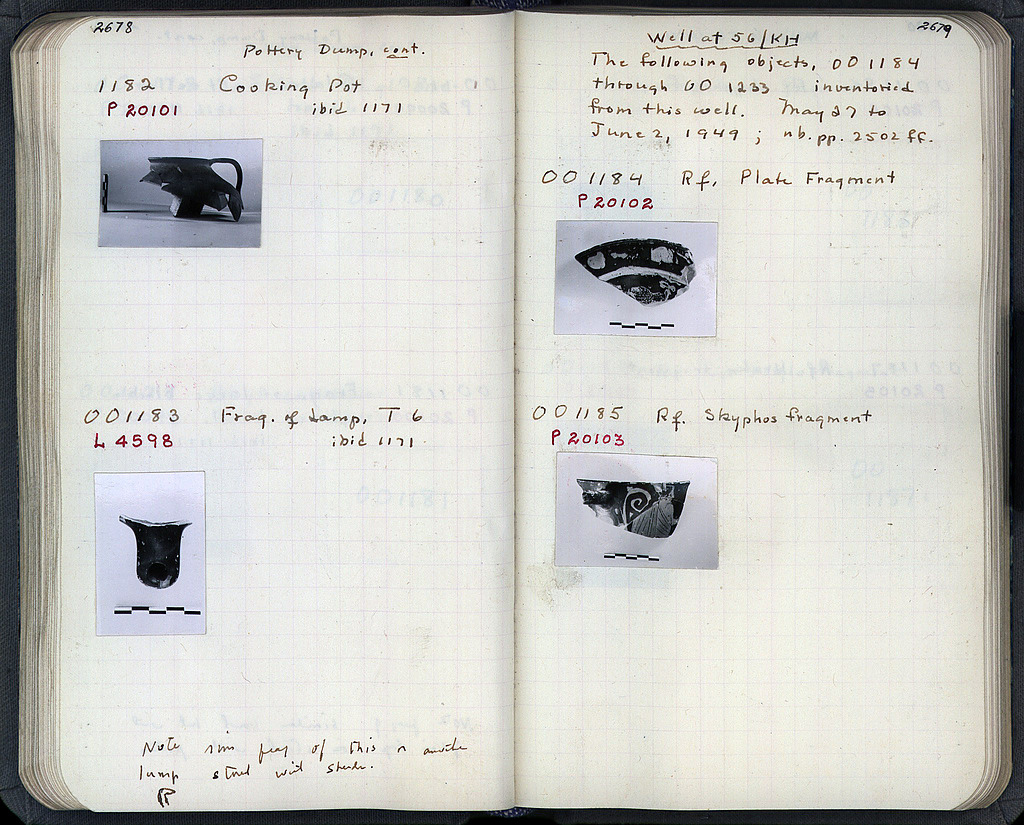 2678
Pottery Dump, cont.
1182 Cooking Pot
P 20101 ibid 1171
OO 1183 Frag. of Lamp, T 6
L 4598 ibid 1171
Note sim frag of this or another
lamp stored with sherds.
R
2679
Well at 56/KH
The following objects, OO 1184
through OO 1233 inventoried
from this well. May 27 to
June 2, 1949; nb. pp. 2502 ff.
OO 1184 Rf. Plate Fragment
P 20102
OO 1185 Rf. Skyphos fragment
P 20103